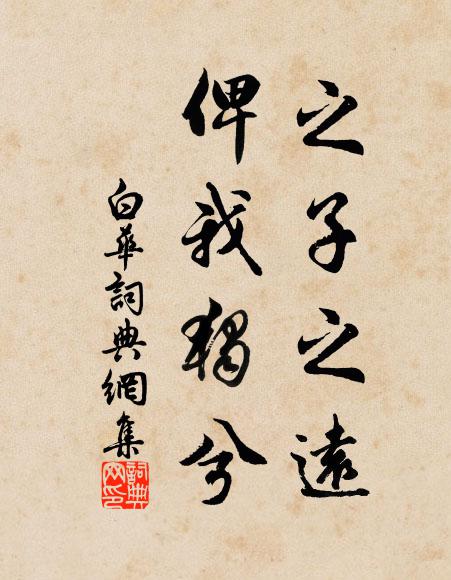 之子之遠
俾我獨兮
白華詞典網集
詞典網印